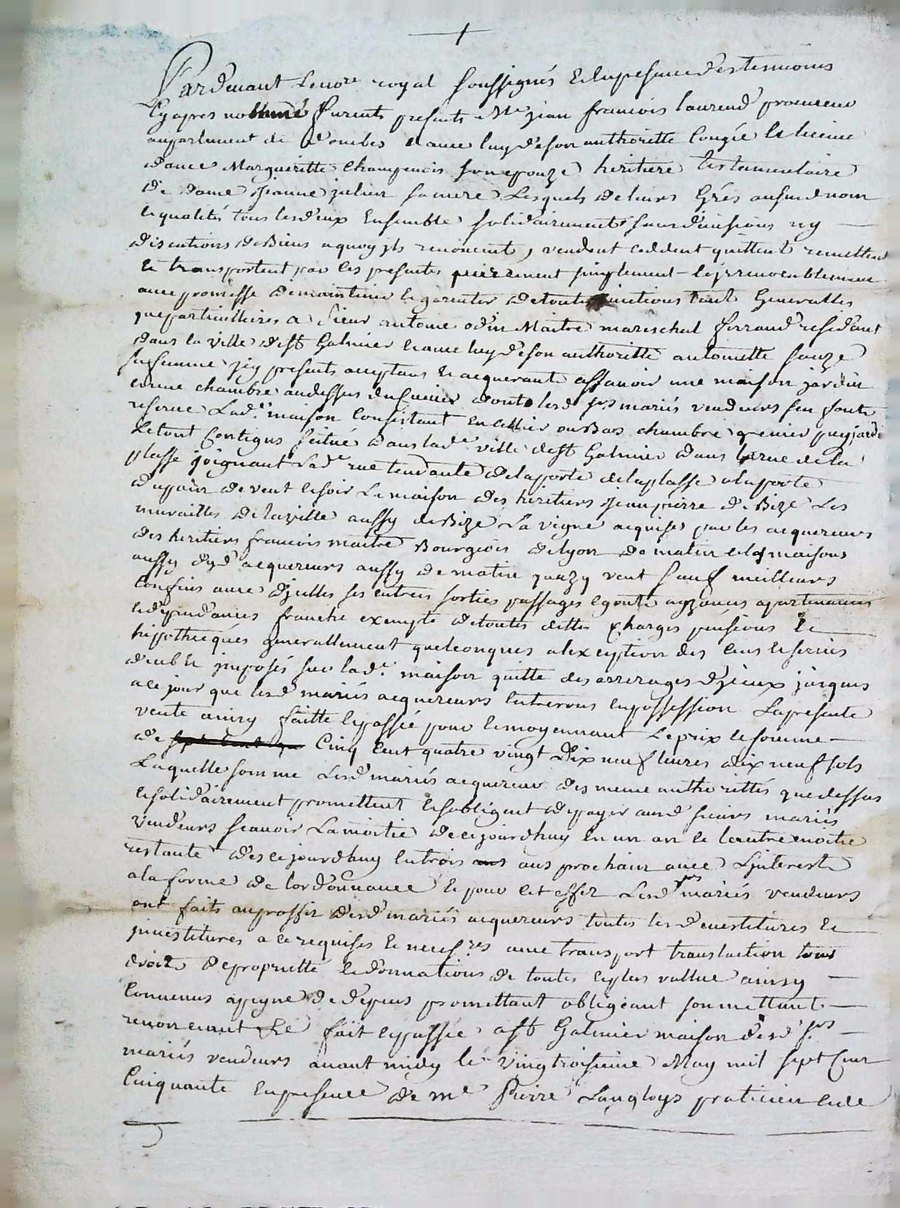 Pardevant Le no.re royal Soussignés et en presence des temoins
Cy apres nommé furent presents M.e jean francois laurend procureur
au parlement de Dombes et avec luy de son authoritte Congée et licence
dame Margueritte Champenois son epouze heritiere testamentaire
de dame jeanne julien sa mere Lesquels de leurs Grés ausud nom
et qualités tous les deux Ensemble solidairement sans divisions ny
discutions de Biens a quoy jls renoncent, vendent ceddent quittent remettent
Et transportent par les presentes purement simplement et jrrevocablement
avec promesse de maintenir et garentir de touts evictions tant Generalles
que particulieres a sieur antoine odin Maitre mareschal ferrand residant
dans la ville de S.t Galmier et avec luy de son authoritte antoinette
sa femme jcy presents acceptans et acquerants assavoir une maison jardin
et une chambre audessus du cuvier dont lesd. s.rs mariés vendeurs sen font
reserve Lad.e maison Consistant en cellier ou Bas chambre grenier jardin
Le tout Contigus scitué dans lad.e ville de S.t Galmier dans la rue de la
plasse joignant lad.e rue tendante de la porte de la plasse a la porte
de vent et soir La maison des heritiers jean pierre de Bize Les
murailles de la ville aussy de Bize La vigne acquise par les acquereurs
des heritiers francois maitre Bourgeois de lyon de matin et les maisons
aussy desd. acquereurs aussy de matin quazy vent sauf meilleurs
Confins avec d'jcelles ses entrées sorties passages egouts aizances apartenances
et dependances franche exempte de toutes dettes Charges pensions Et
hipotheques generallement quelconques a lexception des Cens et servis
deub Et jmposés sur lad.e maison quitte des arrerages d'jceux jusques
a ce jour que lesd. mariés acquereurs entreront en possession La presente
vente ainsy faitte et passée pour et moyennant Le prix et somme
de Cinq Cent quatre vingt dix neuf livres dix neuf sols
Laquelle somme Lesd. mariés acquereurs des meme authorittés que dessus
et solidairement promettent et sobligent de payer ausd. sieurs mariés
vendeurs scavoir La moitié de ce jourdhuy en un an et Lautre moitié
restante des ce jourdhuy en trois ans prochain avec Linterest
a la forme de lordonnance Et pour cet effet Lesd. s.rs mariés vendeurs
ont faits au proffit desd. mariés acquereurs toutes les devestitures Et
jnvestitures a ce requises Et necess.res avec transport translaction tous
droit de proprietté et donnations de toutes et plus vallue ainsy
Convenus a peyne de depens promettant obligeant soumettant
renoncant Et fait et passée a S.t Galmier maison desd. s.rs
mariés vendeurs avant midy le vingtroisieme May mil sept Cent
Cinquante En presence de m.e Pierre Langloys praticien et de